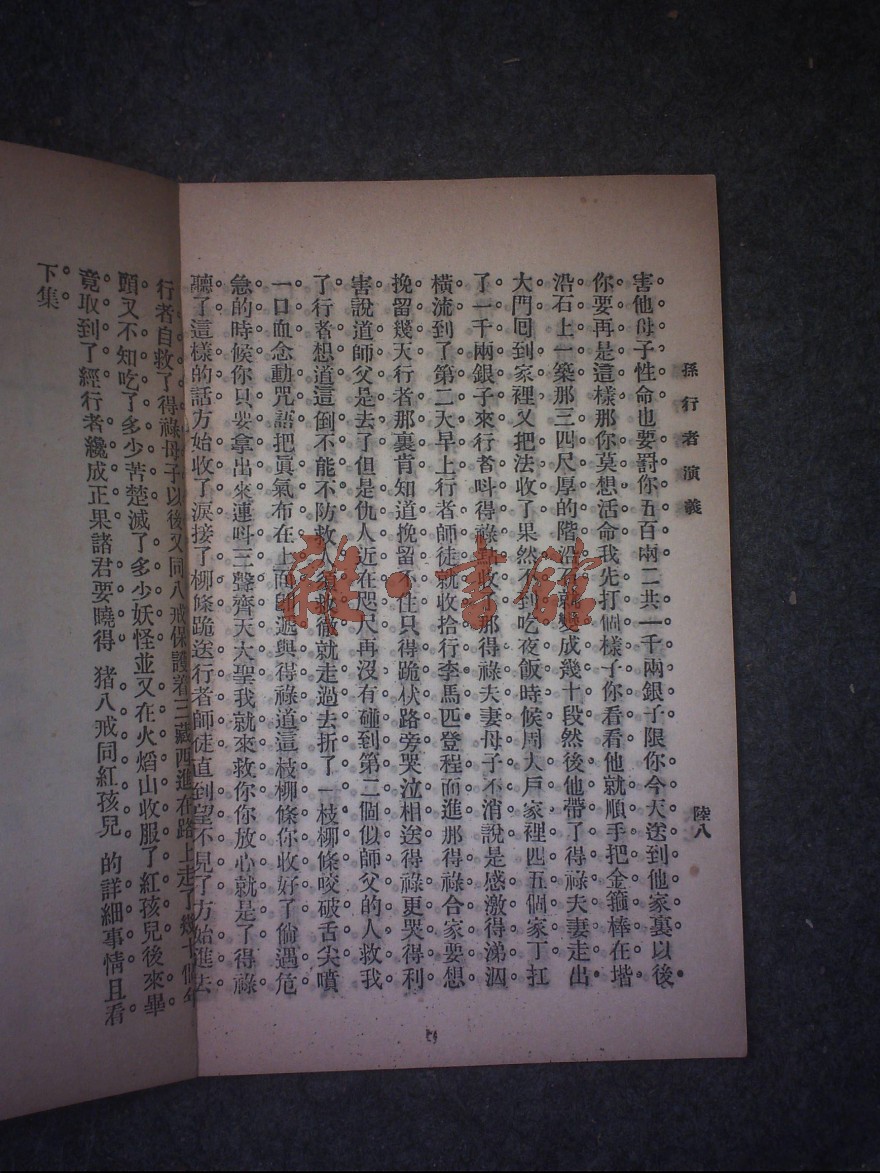 孫行者演義
陸八
害他母子性命也要罰你五百兩二共一千兩銀子限你今天送到他家裏以後
你要再是這樣那你莫想活命我先打個樣子你看看他就順手把金箍棒在堦
沿石上一築那三四尺厚的階沿石就變成幾十段然後他帶了得祿夫妻走出
大門回到家裡又把法收了果然到吃夜飯時候周大戶家裡四五個家丁扛
了一千兩銀子來行者呌得祿點收了那得祿夫妻母子不消說是感激得涕泗
橫流到了第二天早上行者師徒就收拾行李馬匹登程而進那得祿合家要想
挽留幾天行者那裏肯知道挽留不住只得跪伏路旁哭泣相送得祿更哭得利
害說道師父是去了但是仇人近在咫尺再沒有碰到第二個似師父的人救我
了行者想道這倒不能不防救人須救徹就走過去折了一枝柳條咬破舌尖噴
一口血念動咒語把眞氣布在上面卽遞與得祿道這枝柳條你收好了倘遇危
急的時候你只要拿出來連呌三聲齊天大聖我就來救你你放心就是了得祿
聽了這樣的話方始收了淚接了柳條跪送行者師徒直到望不見了方始進去
行者自救了得祿母子以後又同八戒保護着三藏西進在路上走了幾十個年
頭又不知吃了多少苦楚滅了多少妖怪並又在火燄山收服了紅孩兒後來畢
竟取到了經行者纔成正果諸君要曉得 猪八戒同紅孩兒 的詳細事情且看
下集
雜·書館